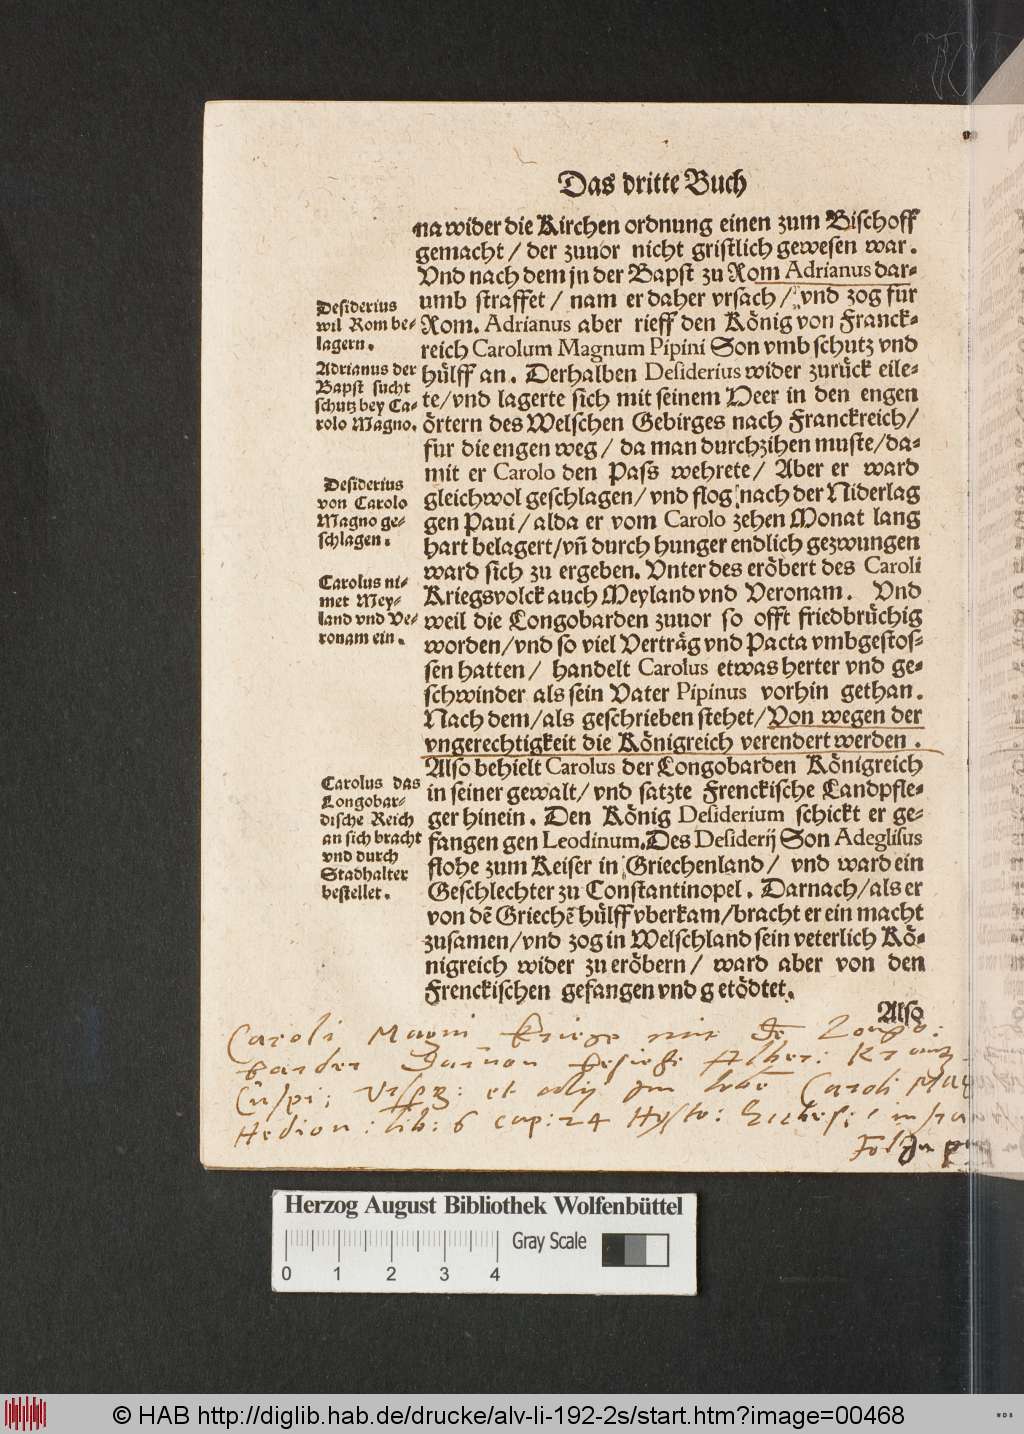 Das dritte Buch
na wider die Kirchen ordnung einen zum Bischoff
gemacht / der zuuor nicht gristlich gewesen war.
Vnd nach dem jn der Bapst zu Rom Adrianus dar-
umb straffet / nam er daher vrsach / vnd zog fur
Rom. Adrianus aber rieff den König von Franck-
reich Carolum Magnum Pipini Son vmb schutz vnd
hülff an. Derhalben Desiderius wider zurück eile-
te/vnd lagerte sich mit seinem Heer in den engen
örtern des Welschen Gebirges nach Franckreich/
fur die engen weg / da man durchzihen muste/da-
mit er Carolo den Pass wehrete/ Aber er ward
gleichwol geschlagen/ vnd flog nach der Niderlag
gen Paui / alda er vom Carolo zehen Monat lang
hart belagert/vñ durch hunger endlich gezwungen
ward sich zu ergeben. Vnter des eröbert des Caroli
Kriegsvolck auch Meyland vnd Veronam. Vnd
weil die Longobarden zuuor so offt friedbrüchig
worden/vnd so viel Verträg vnd Pacta vmbgestos-
sen hatten/ handelt Carolus etwas herter vnd ge-
schwinder als sein Vater Pipinus vorhin gethan.
Nach dem/als geschrieben stehet/Von wegen der
vngerechtigkeit die Königreich verendert werden.
Also behielt Carolus der Longobarden Königreich
in seiner gewalt/ vnd satzte Frenckische Landpfle-
ger hinein. Den König Desiderium schickt er ge-
fangen gen Leodinum. Des Desiderij Son Adeglisus
flohe zum Keiser in Griechenland/ vnd ward ein
Geschlechter zu Constantinopel. Darnach/als er
von dē Griechē hülff vberkam/bracht er ein macht
zusamen/vnd zog in Welschland sein veterlich Kö-
nigreich wider zu eröbern/ ward aber von den
Frenckischen gefangen vnd getödtet.
Also
Desiderius
wil Rom be-
lagern.
Adrianus der
Bapst sucht
schutz bey Ca-
rolo Magno.
Desiderius
von Carolo
Magno ge-
schlagen.
Carolus ni-
met Mey-
land vnd Ve-
ronam ein.
Carolus das
Longobar-
dische Reich
an sich bracht
vnd durch
Stadhalter
bestellet.
Caroli Magni kriege mit
barder Dauon besiehe Alber: Krantz
Cuspi: Vrsp: et alij Caroli
Hedion: lib: 6 cap: 24 Hysto: Eccles:
Fol
Herzog August Bibliothek Wolfenbüttel
Gray Scale
0 1 2 3 4
© HAB http://diglib.hab.de/drucke/alv-li-192-2s/start.htm?image=00468